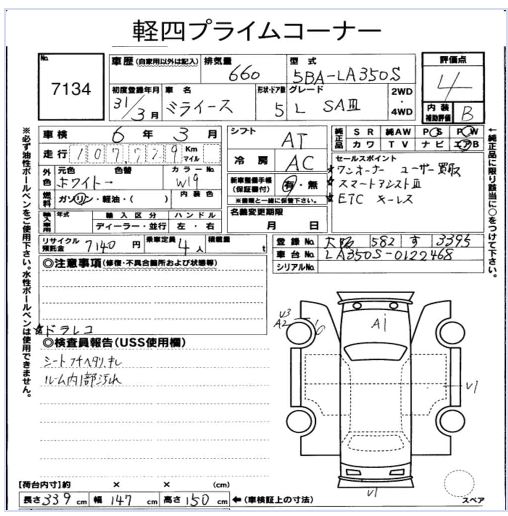 軽四プライムコーナー
No.
7134
車歴 (自家用以外は記入)
排気量
660
型式
5BA-LA350S
評価点
4
初度登録年月
31/3月
車名
ミライース
形状ドア数
5
グレード
L SAⅢ
2WD
・
4WD
内装補助評価
B
車検 6年 3月
走行 107739 Km
マイル
外色
元色
ホワイト→
色替
カラーNo.
W19
燃料
ガソリン・軽油・( )
内装色
輸入車用
年式
輸入区分
ディーラー・並行
ハンドル
左・右
リサイクル預託金
7140円
乗車定員
4人
積載量
t
シフト
AT
冷房
AC
新車整備手帳(保証書付)
有・無
※書類と一緒に保管下さい
名義変更期限
月 日
純正品
SR 純AW PS PW
カワ TV ナビ エアB
セールスポイント
★ワンオーナー ユーザー買取
★スマートアシストⅢ
★ETC キーレス
登録No. 大阪 582 す 3395
車台No. LA350S-0122468
シリアルNo.
←純正品に限り該当項目に○をつけて下さい。
※必ず油性ボールペンをご使用下さい。水性ボールペンは使用できません。
◎注意事項(修復・不具合箇所および状態等)
★ドラレコ
◎検査員報告(USS使用欄)
シートコゲヘタリ、キレ
ルーム内1部汚れ
U3
A2
A1
V1
V1
スペア
【荷台内寸】約 × × (cm)
長さ 339 cm 幅 147 cm 高さ 150 cm ←(車検証上の寸法)